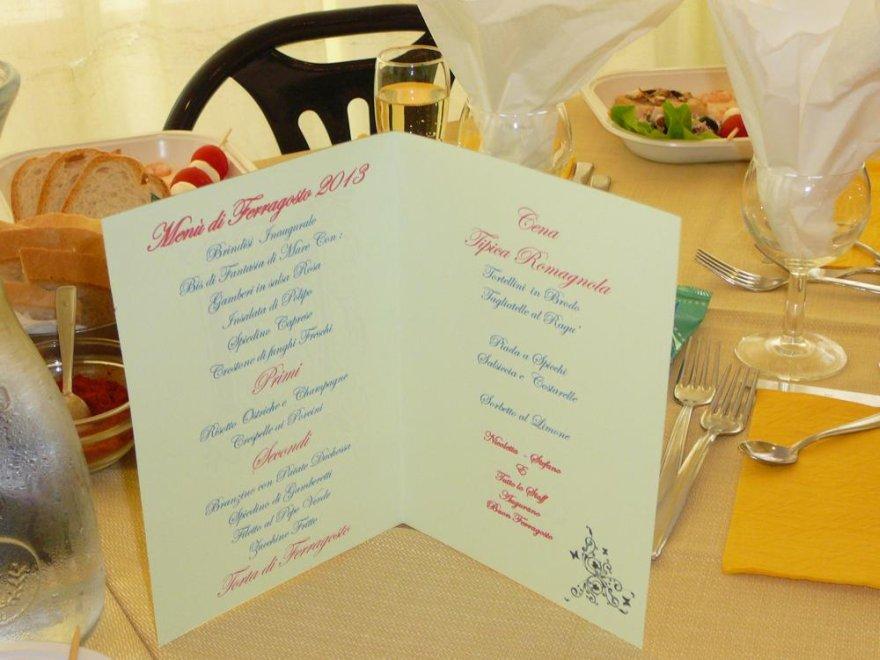 Menù di Ferragosto 2013
Brindisi Inaugurale
Bis di Fantasia di Mare Con:
Gamberi in salsa Rosa
Insalata di Polipo
Spiedino Caprese
Crostone di funghi Freschi
Primi
Risotto Ostriche e Champagne
Crespelle ai Porcini
Secondi
Branzino con Patate Duchossa
Spiedino di Gamberetti
Filetto al Pepe Verde
Zucchine Fritte
Torta di Ferragosto
Cena
Tipica Romagnola
Tortellini in Brodo
Tagliatelle al Ragu'
Piada a Spicchi
Salsiccia e Costarelle
Sorbetto al Limone
Nicoletta - Stefano
E
Tutto lo Staff
Augurano
Buon Ferragosto